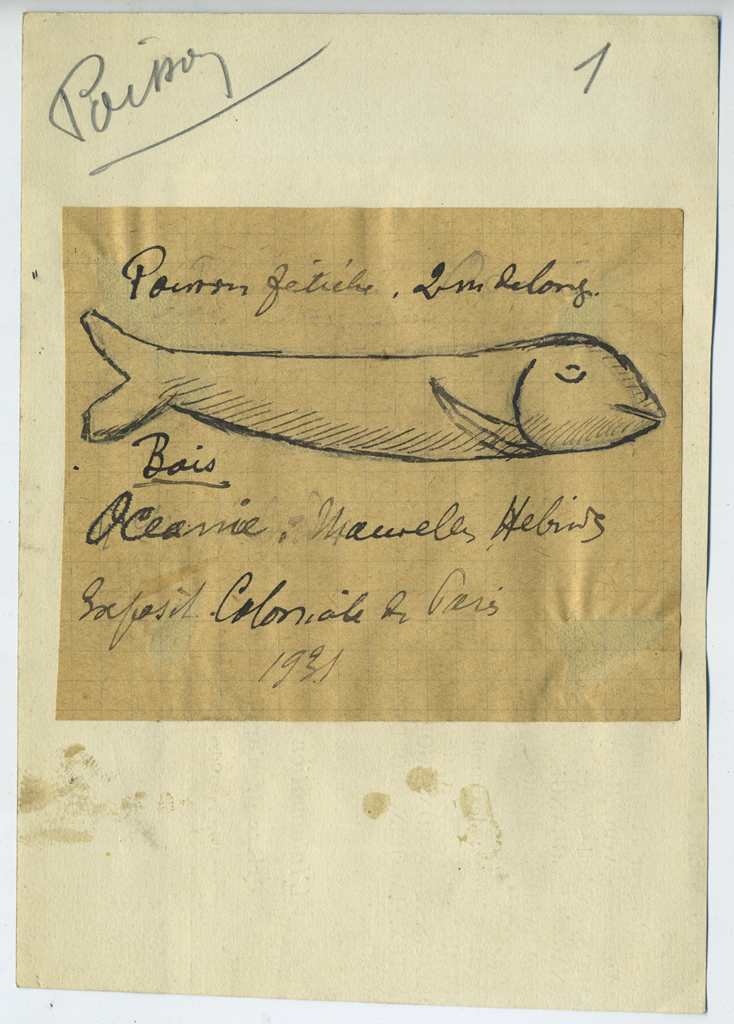 Poisson
1
Poisson fétiche, 2m de long.
Bois
Oceanie, Nouvelles Hebrides
Exposit. Coloniale de Paris
1931